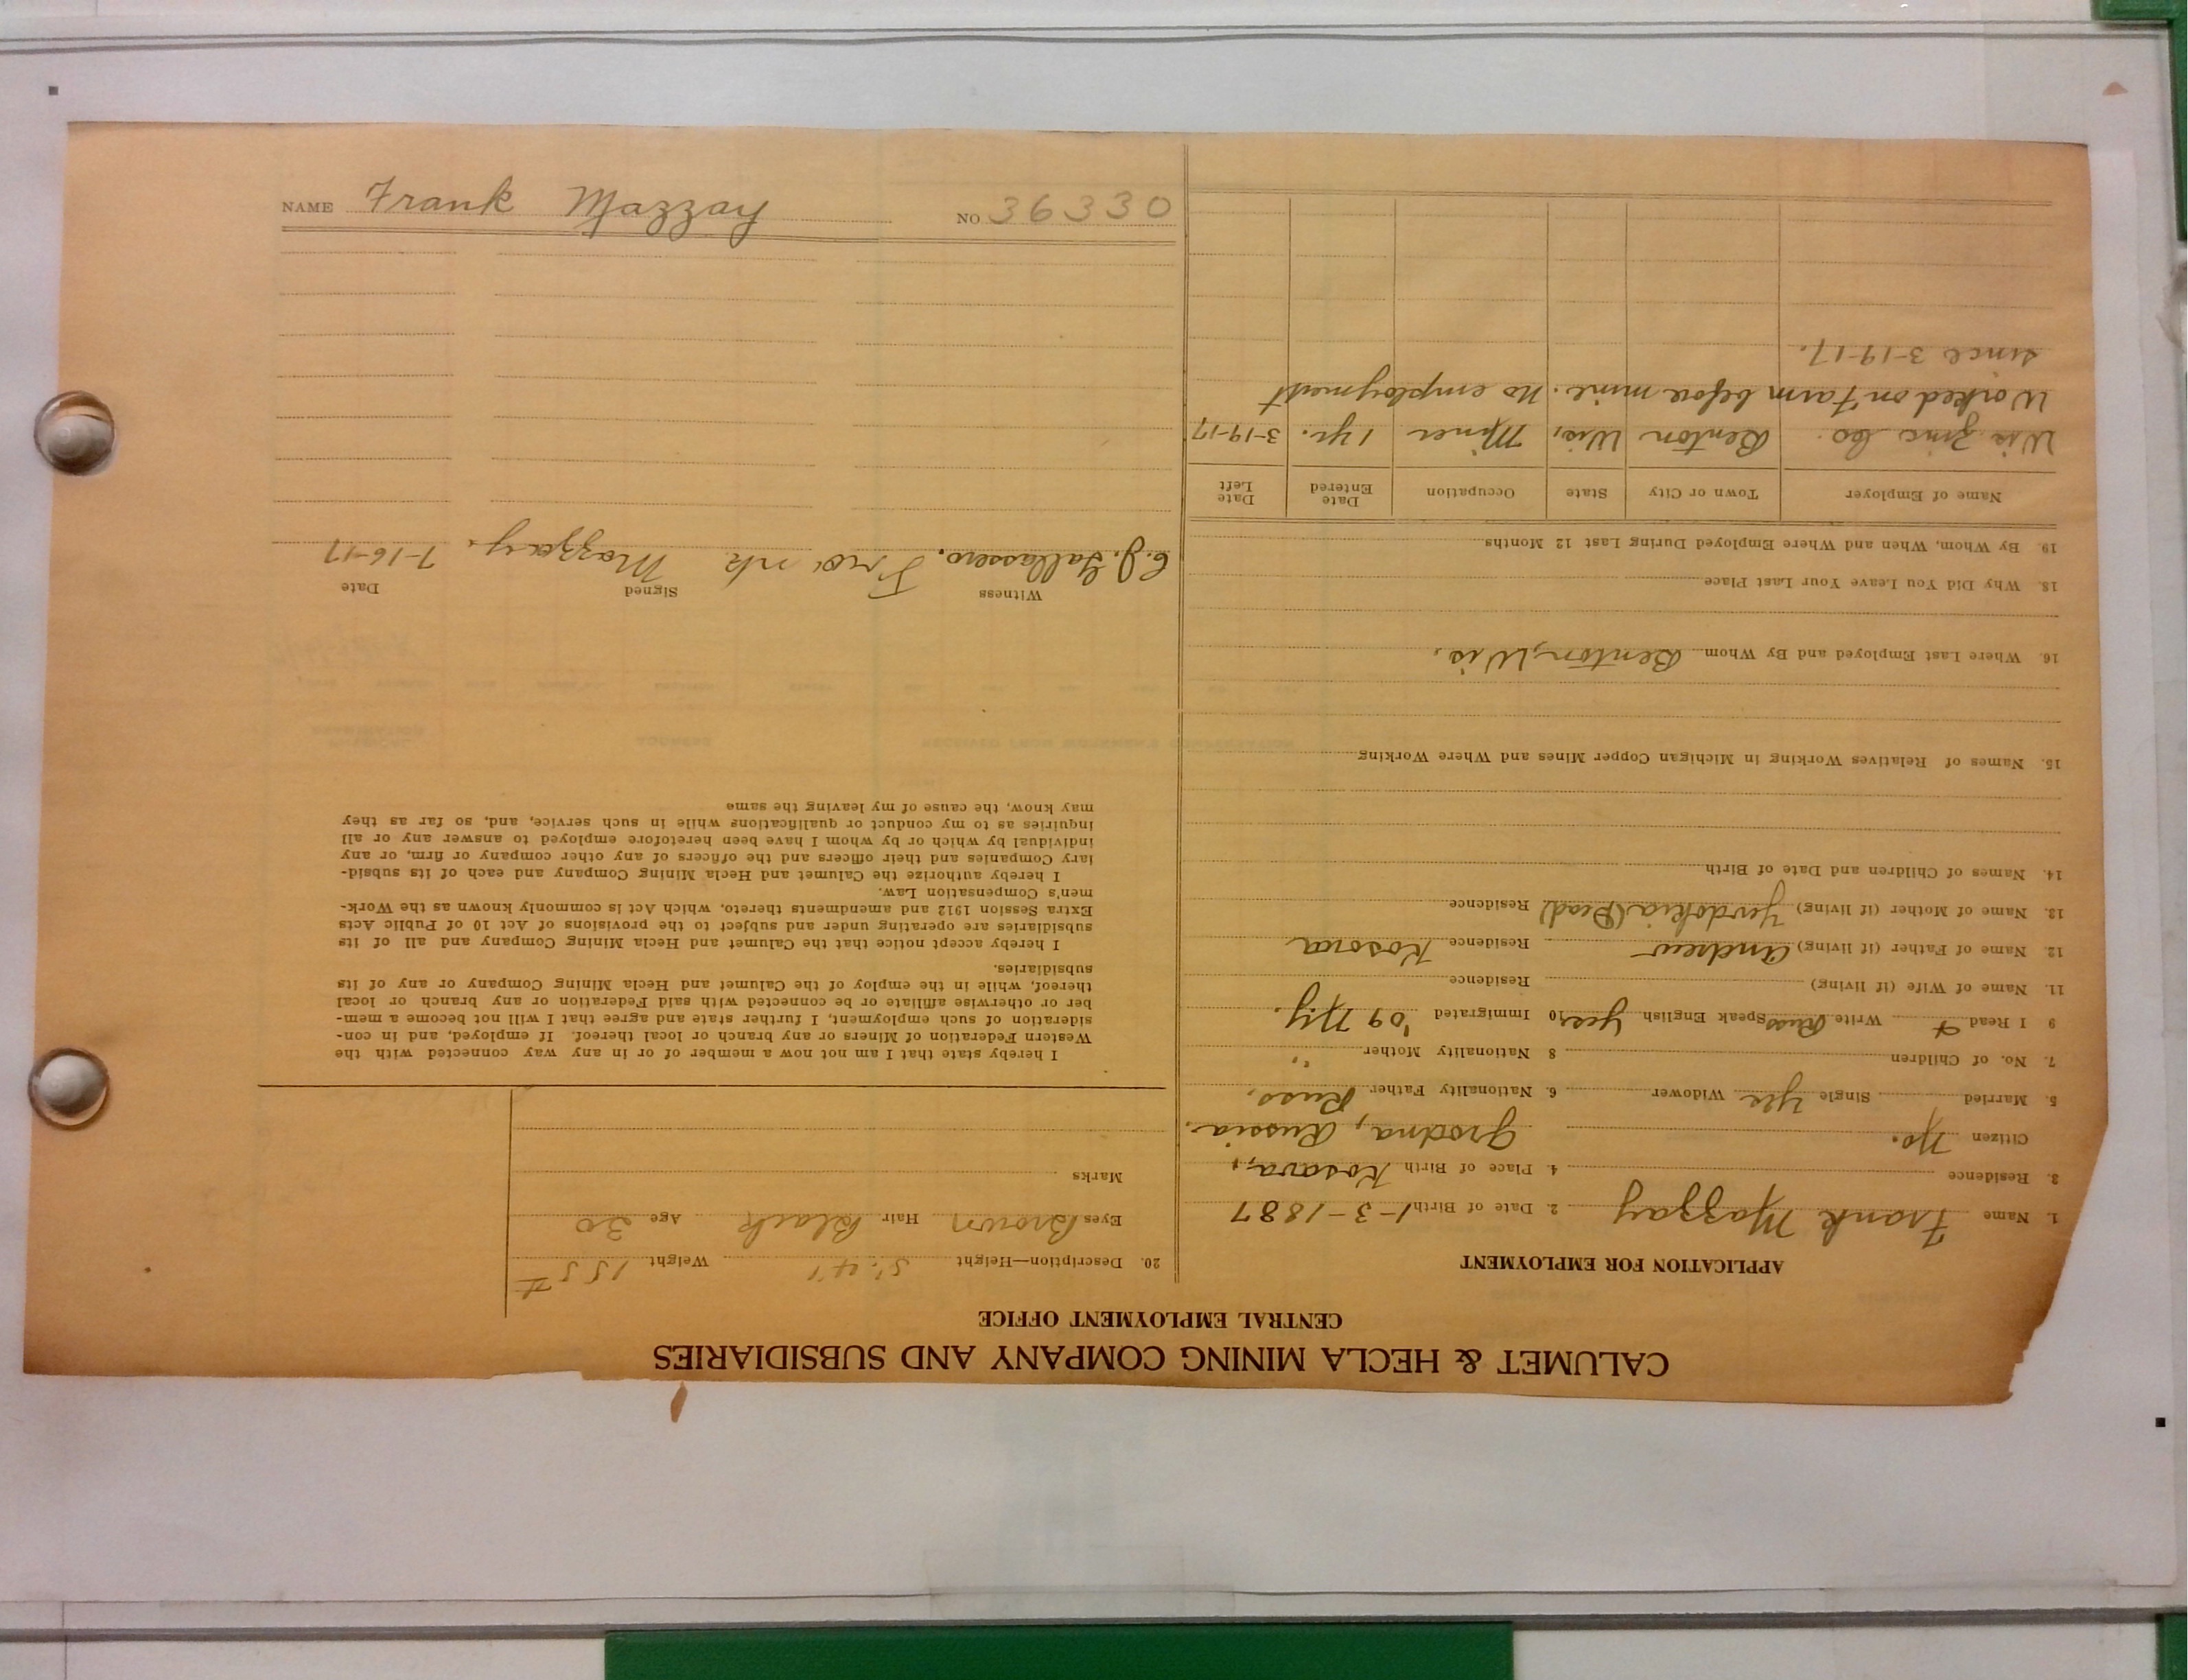 CALUMET & HECLA MINING COMPANY AND SUBSIDIARIES
CENTRAL EMPLOYMENT OFFICE
APPLICATION FOR EMPLOYMENT
1. Name Frank Mazzay 2. Date of Birth 1-3-1887
3. Residence 4. Place of Birth Kosava,
Citizen No. Grodna, Russia.
5. Married Single Yes Widower 6. Nationality Father Russ.
7. No. of Children 8 Nationality Mother "
9 I Read & Write Russ Speak English Yes 10 Immigrated '09 N.Y.
11. Name of Wife (if living) Residence
12. Name of Father (if living) Andrew Residence Kosova
13. Name of Mother (if living) Yevdokia (Dead) Residence
14. Names of Children and Date of Birth
15. Names of Relatives Working in Michigan Copper Mines and Where Working
16. Where Last Employed and By Whom Benton, Wis.
18. Why Did You Leave Your Last Place
19. By Whom, When and Where Employed During Last 12 Months
Name of Employer Town or City State Occupation Date Entered Date Left
Wis Zinc Co. Benton Wis. Miner 1 yr. 3-19-17
Worked on Farm before mine. No employment
since 3-19-17.
20. Description—Height 5'. 4" Weight 155 #
Eyes Brown Hair Black Age 30
Marks
I hereby state that I am not now a member of or in any way connected with the
Western Federation of Miners or any branch or local thereof. If employed, and in con-
sideration of such employment, I further state and agree that I will not become a mem-
ber or otherwise affiliate or be connected with said Federation or any branch or local
thereof, while in the employ of the Calumet and Hecla Mining Company or any of its
subsidiaries.
I hereby accept notice that the Calumet and Hecla Mining Company and all of its
subsidiaries are operating under and subject to the provisions of Act 10 of Public Acts
Extra Session 1912 and amendments thereto, which Act is commonly known as the Work-
men's Compensation Law.
I hereby authorize the Calumet and Hecla Mining Company and each of its subsid-
iary Companies and their officers and the officers of any other company or firm, or any
individual by which or by whom I have been heretofore employed to answer any or all
inquiries as to my conduct or qualifications while in such service, and, so far as they
may know, the cause of my leaving the same
Witness Signed Date
Mazzay. 7-16-17
NAME Frank Mazzay NO 36330